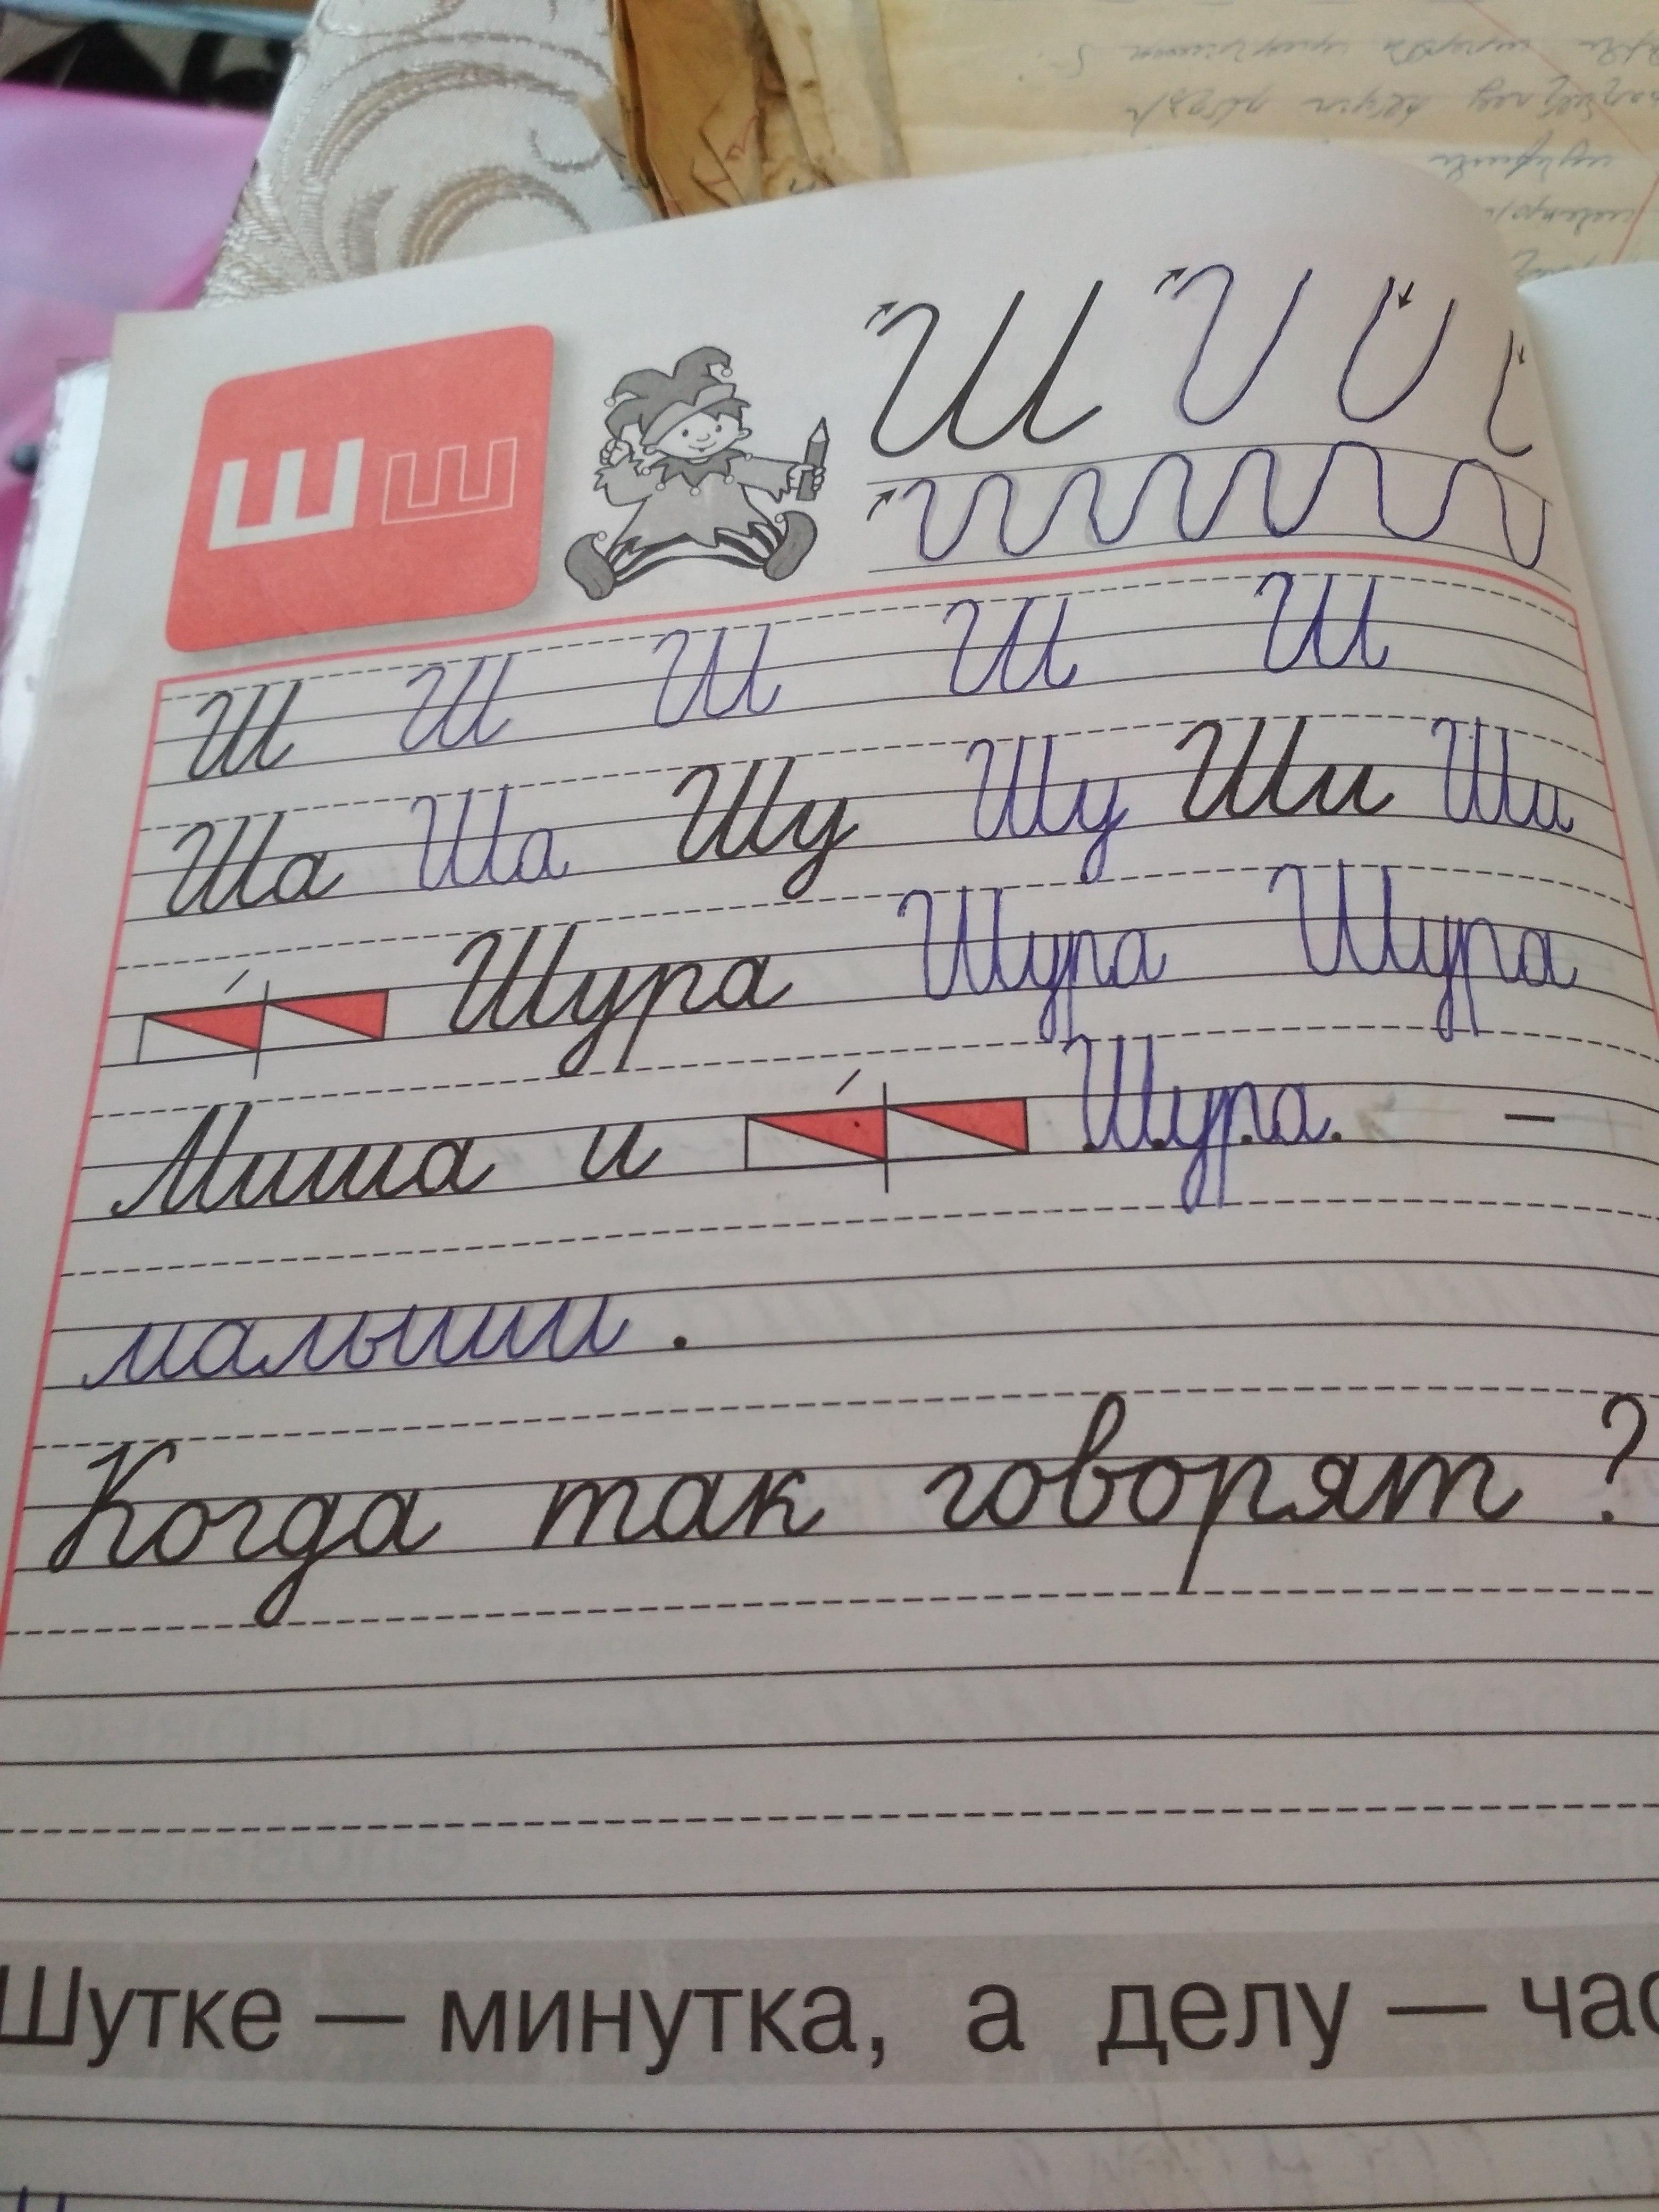 Ш ш
Ш
Ш Ш Ш Ш Ш
Ша Ша Шу Шу Ши Ши
Шура Шура Шура
Миша и Шура. —
малыши.
Когда так говорят?
Шутке — минутка, а делу — час